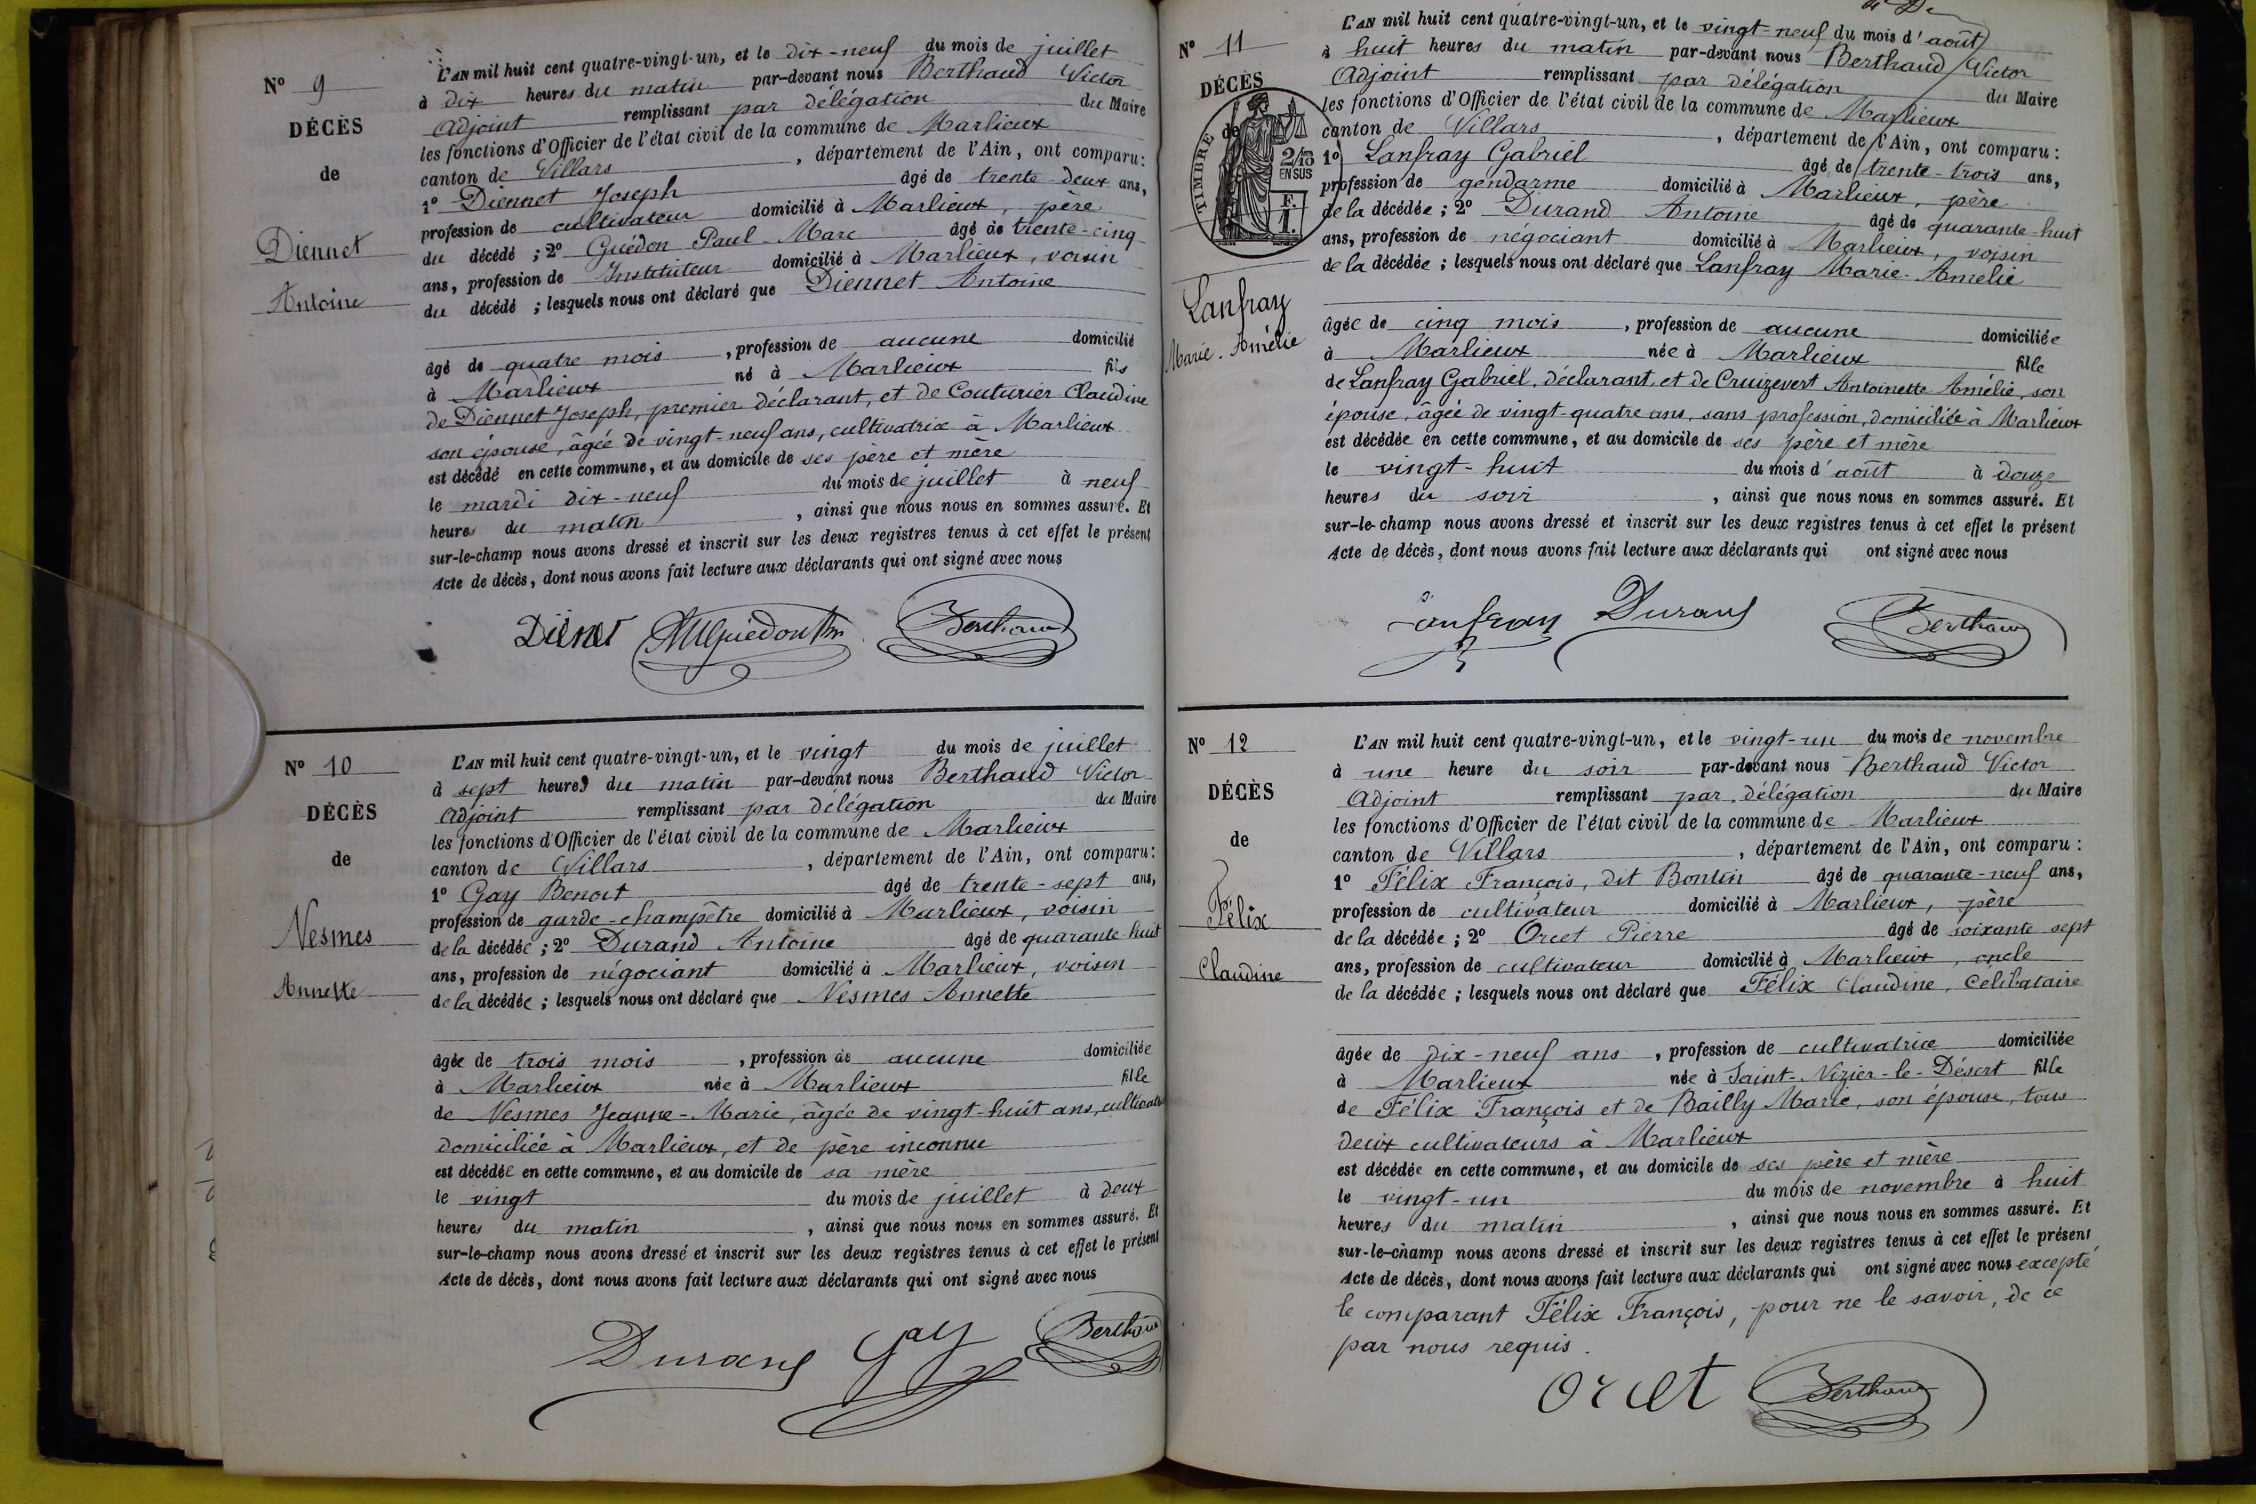 N° 9
DÉCÈS
de
Diennet
Antoine
L'AN mil huit cent quatre-vingt-un, et le dix-neuf du mois de juillet
à dix heures du matin par-devant nous Berthaud Victor
Adjoint remplissant par délégation du Maire
les fonctions d'Officier de l'état civil de la commune de Marlieux
canton de Villars, département de l'Ain, ont comparu :
1° Diennet Joseph âgé de trente-deux ans,
profession de cultivateur domicilié à Marlieux, père
du décédé ; 2° Guédon Paul-Marc âgé de trente-cinq
ans, profession de Instituteur domicilié à Marlieux, voisin
du décédé ; lesquels nous ont déclaré que Diennet Antoine
âgé de quatre mois, profession de aucune domicilié
à Marlieux né à Marlieux fils
de Diennet Joseph, premier déclarant, et de Couturier Claudine
son épouse, âgée de vingt-neuf ans, cultivatrice à Marlieux
est décédé en cette commune, et au domicile de ses père et mère
le mardi dix-neuf du mois de juillet à neuf
heures du matin, ainsi que nous nous en sommes assuré. Et
sur-le-champ nous avons dressé et inscrit sur les deux registres tenus à cet effet le présent
Acte de décès, dont nous avons fait lecture aux déclarants qui ont signé avec nous
Dienet Berthaud
N° 10
DÉCÈS
de
Nesmes
Annette
L'AN mil huit cent quatre-vingt-un, et le vingt du mois de juillet
à sept heures du matin par-devant nous Berthaud Victor
Adjoint remplissant par délégation du Maire
les fonctions d'Officier de l'état civil de la commune de Marlieux
canton de Villars, département de l'Ain, ont comparu :
1° Gay Benoit âgé de trente-sept ans,
profession de garde-champêtre domicilié à Marlieux, voisin
de la décédée ; 2° Durand Antoine âgé de quarante-huit
ans, profession de négociant domicilié à Marlieux, voisin
de la décédée ; lesquels nous ont déclaré que Nesmes Annette
âgée de trois mois, profession de aucune domiciliée
à Marlieux née à Marlieux fille
de Nesmes Jeanne-Marie, âgée de vingt-huit ans,
domiciliée à Marlieux, et de père inconnu
est décédée en cette commune, et au domicile de sa mère
le vingt du mois de juillet à deux
heures du matin, ainsi que nous nous en sommes assuré. Et
sur-le-champ nous avons dressé et inscrit sur les deux registres tenus à cet effet le présent
Acte de décès, dont nous avons fait lecture aux déclarants qui ont signé avec nous
Durand Gay Berthaud
N° 11
DÉCÈS
de
TIMBRE
2/10
EN SUS
F.
1.
Lanfray
Marie-Amélie
L'AN mil huit cent quatre-vingt-un, et le vingt-neuf du mois d'août
à huit heures du matin par-devant nous Berthaud Victor
Adjoint remplissant par délégation du Maire
les fonctions d'Officier de l'état civil de la commune de Marlieux
canton de Villars, département de l'Ain, ont comparu :
1° Lanfray Gabriel âgé de trente-trois ans,
profession de gendarme domicilié à Marlieux, père
de la décédée ; 2° Durand Antoine âgé de quarante-huit
ans, profession de négociant domicilié à Marlieux, voisin
de la décédée ; lesquels nous ont déclaré que Lanfray Marie-Amélie
âgée de cinq mois, profession de aucune domiciliée
à Marlieux née à Marlieux fille
de Lanfray Gabriel, déclarant, et de Cruizevert Antoinette Amélie, son
épouse, âgée de vingt-quatre ans, sans profession, domiciliée à Marlieux
est décédée en cette commune, et au domicile de ses père et mère
le vingt-huit du mois d'août à douze
heures du soir, ainsi que nous nous en sommes assuré. Et
sur-le-champ nous avons dressé et inscrit sur les deux registres tenus à cet effet le présent
Acte de décès, dont nous avons fait lecture aux déclarants qui ont signé avec nous
Lanfray Durand Berthaud
N° 12
DÉCÈS
de
Félix
Claudine
L'AN mil huit cent quatre-vingt-un, et le vingt-un du mois de novembre
à une heure du soir par-devant nous Berthaud Victor
Adjoint remplissant par délégation du Maire
les fonctions d'Officier de l'état civil de la commune de Marlieux
canton de Villars, département de l'Ain, ont comparu :
1° Félix François, dit Bontin âgé de quarante-neuf ans,
profession de cultivateur domicilié à Marlieux, père
de la décédée ; 2° Orcet Pierre âgé de soixante sept
ans, profession de cultivateur domicilié à Marlieux, oncle
de la décédée ; lesquels nous ont déclaré que Félix Claudine, Célibataire
âgée de dix-neuf ans, profession de cultivatrice domiciliée
à Marlieux née à Saint-Nizier-le-Désert fille
de Félix François et de Bailly Marie, son épouse, tous
deux cultivateurs à Marlieux
est décédée en cette commune, et au domicile de ses père et mère
le vingt-un du mois de novembre à huit
heures du matin, ainsi que nous nous en sommes assuré. Et
sur-le-champ nous avons dressé et inscrit sur les deux registres tenus à cet effet le présent
Acte de décès, dont nous avons fait lecture aux déclarants qui ont signé avec nous excepté
le comparant Félix François, pour ne le savoir, de ce
par nous requis.
Orcet Berthaud